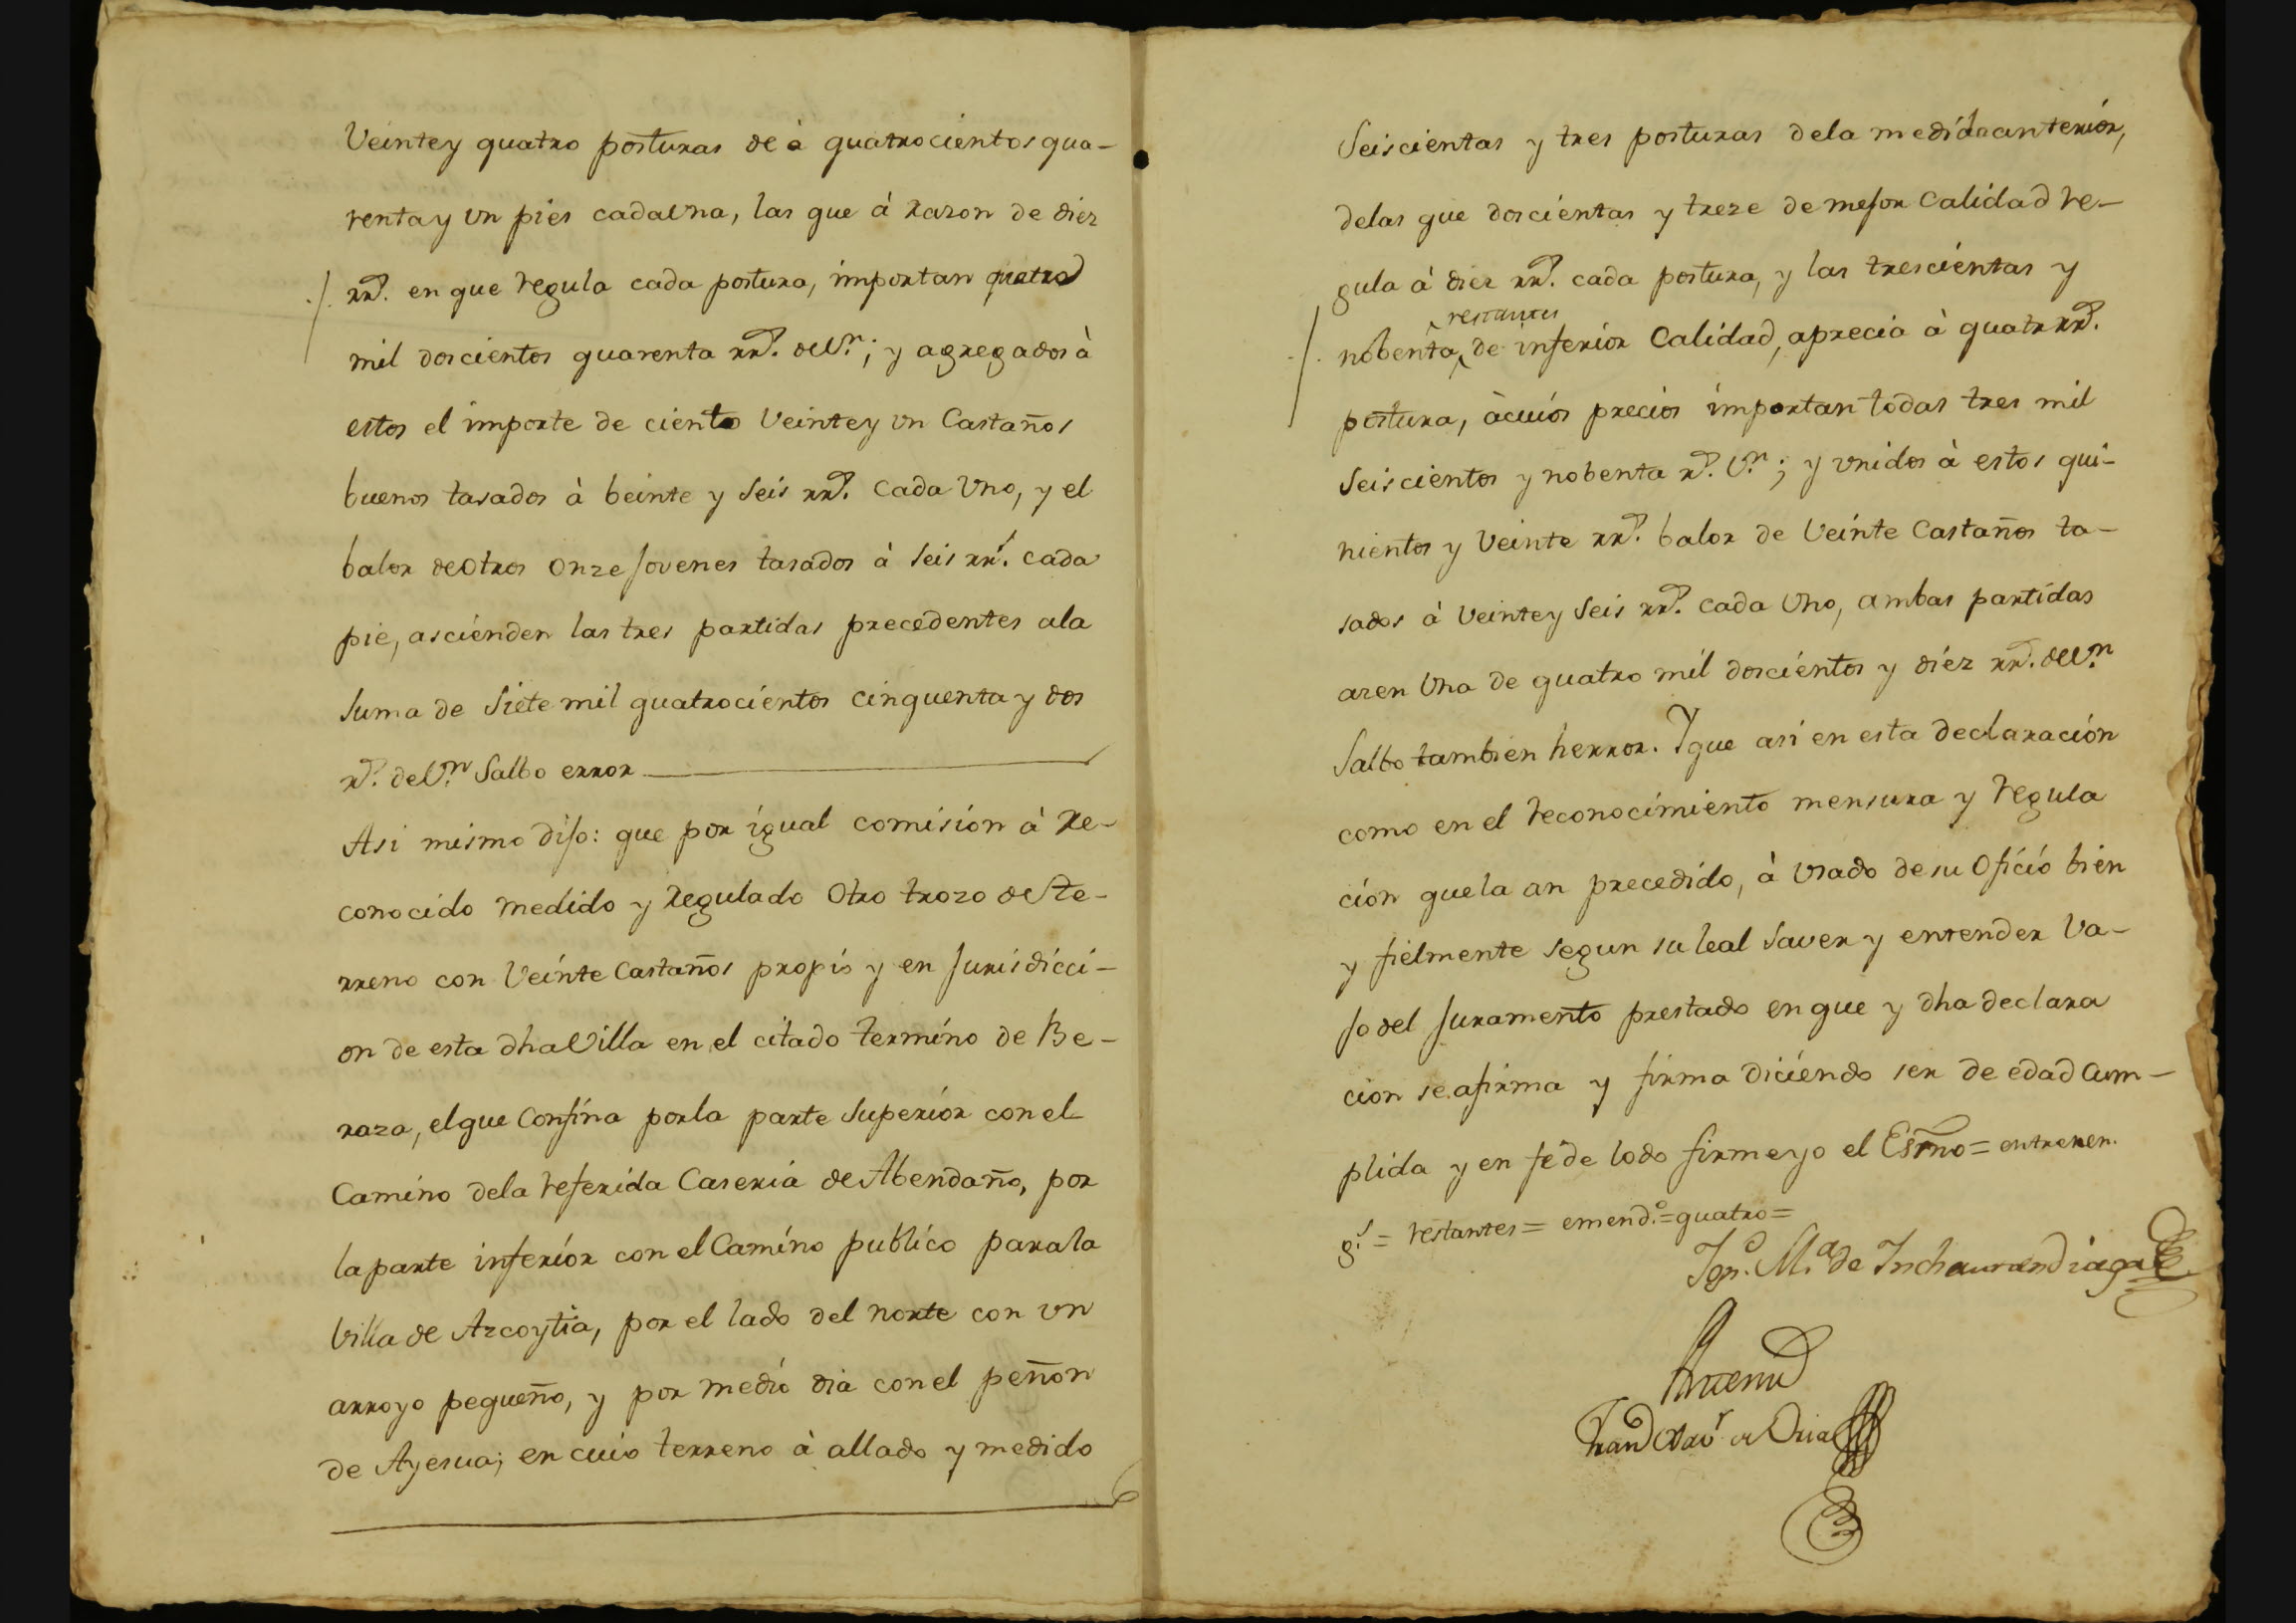 Veintey quatro posturas de à quatrocientos qua-
renta y vn pies cadauna, las que à razon de diez
rr.s en que regula cada postura, importan quatro
mil doscientos quarenta rr.s deV.n; y agregados à
estos el importe de ciento Veintey vn Castaños
buenos tasados à beinte y seis rr.s cada Vno, y el
balor deotros onze Jovenes tasados à seis rr.s cada
pie, ascienden las tres partidas precedentes ala
suma de Siete mil quatrocientos cinquenta y dos
r.s deV.n Salbo error
Asi mismo dijo: que por igual comision à Re-
conocido medido y Regulado Otro trozo de te-
rreno con Veinte Castaños propio y en Jurisdicci-
on de esta dha Villa en el citado termino de Be-
raza, elque Confina porla parte Superior con el
Camino dela referida Caseria de Abendaño, por
laparte inferior con el Camino publico parala
Villa de Azcoytia, por el lado del norte con vn
arroyo pequeño, y por medio dia con el peñon
de Ayerua; en cuio terreno à allado y medido
Seiscientas y tres posturas dela medida anterior,
delas que doscientas y treze de mejor Calidad re-
gula à diez rr.s cada postura, y las trescientas y
restantes
nobenta, de inferior Calidad, aprecia à quatr rr.s
postura, àcuios precios importan todas tres mil
Seiscientos y nobenta r.s V.n; y vnidos à estos qui-
nientos y Veinte rr.s balor de Veinte Castaños ta-
sados à Veintey Seis rr.s cada Uno, ambas partidas
azen Una de quatro mil doscientos y diez rr.s deV.n
Salbo tambien herror. Y que asi en esta declaracion
como en el reconocimiento mensura y regula
cion quela an precedido, à Usado de su Oficio bien
y fielmente segun su leal Saver y entender Va-
jo del Juramento prestado en que y dha declara
cion se afirma y firma diciendo ser de edad Cum-
plida y en fe de lodo firmeyo el Esno = entreren.
g.s = restantes = emend.o = quatro =
Jph. M.a de Inchaurrandiaga
Antemi
Fran.co Xav.r de Oria